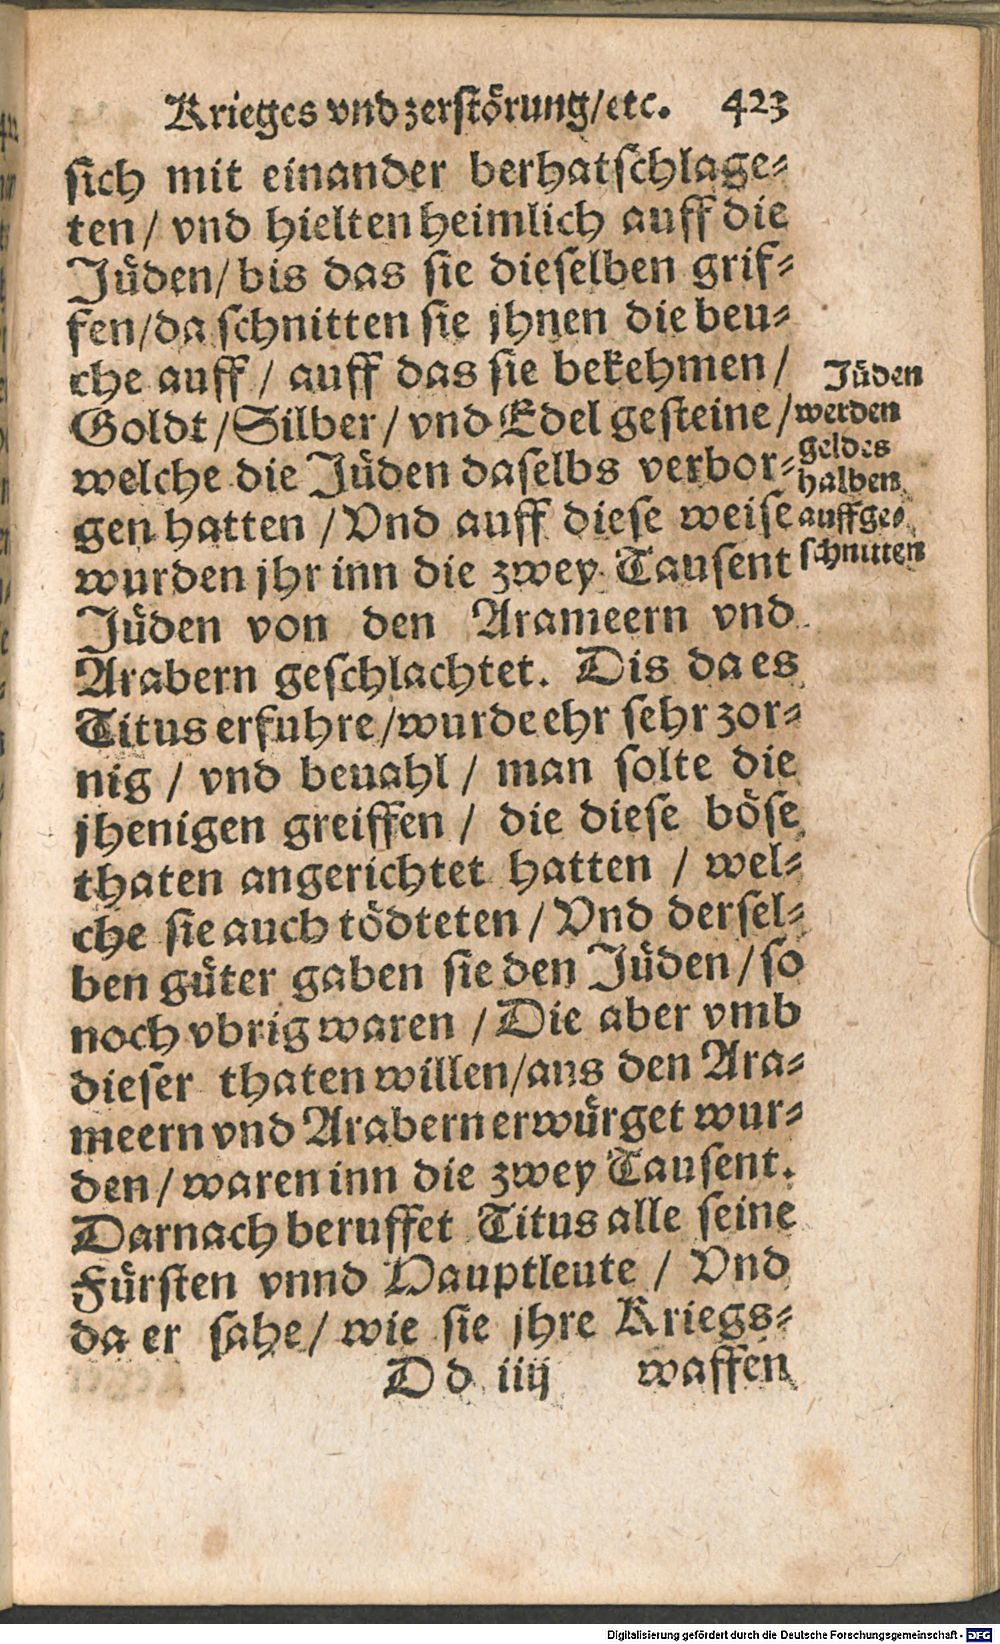 Krieges vnd zerstörung/etc. 423
sich mit einander berhatschlage-
ten / vnd hielten heimlich auff die
Jüden/ bis das sie dieselben grif-
fen/da schnitten sie jhnen die beu-
che auff / auff das sie bekehmen /
Goldt /Silber / vnd Edel gesteine /
welche die Jüden daselbs verbor-
gen hatten / Vnd auff diese weise
wurden jhr inn die zwey Tausent
Jüden von den Arameern vnd
Arabern geschlachtet. Dis da es
Titus erfuhre /wurde ehr sehr zor-
nig / vnd beuahl / man solte die
jhenigen greiffen / die diese böse
thaten angerichtet hatten / wel-
che sie auch tödteten / Vnd dersel-
ben güter gaben sie den Jüden / so
noch vbrig waren / Die aber vmb
dieser thaten willen/aus den Ara-
meern vnd Arabern erwürget wur-
den / waren inn die zwey Tausent.
Darnach beruffet Titus alle seine
Fürsten vnnd Hauptleute / Vnd
da er sahe / wie sie jhre Kriegs-
D d iiij waffen
Jüden
werden
geldes
halben
auffge-
schnitten
Digitalisierung gefördert durch die Deutsche Forschungsgemeinschaft - DFG